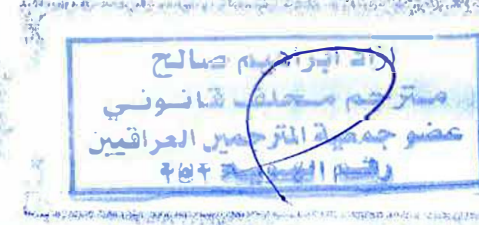 ازاد ابراهيم صالح
مترجم محلف قانوني
عضو جمعية المترجمين العراقيين
رقم الهوية